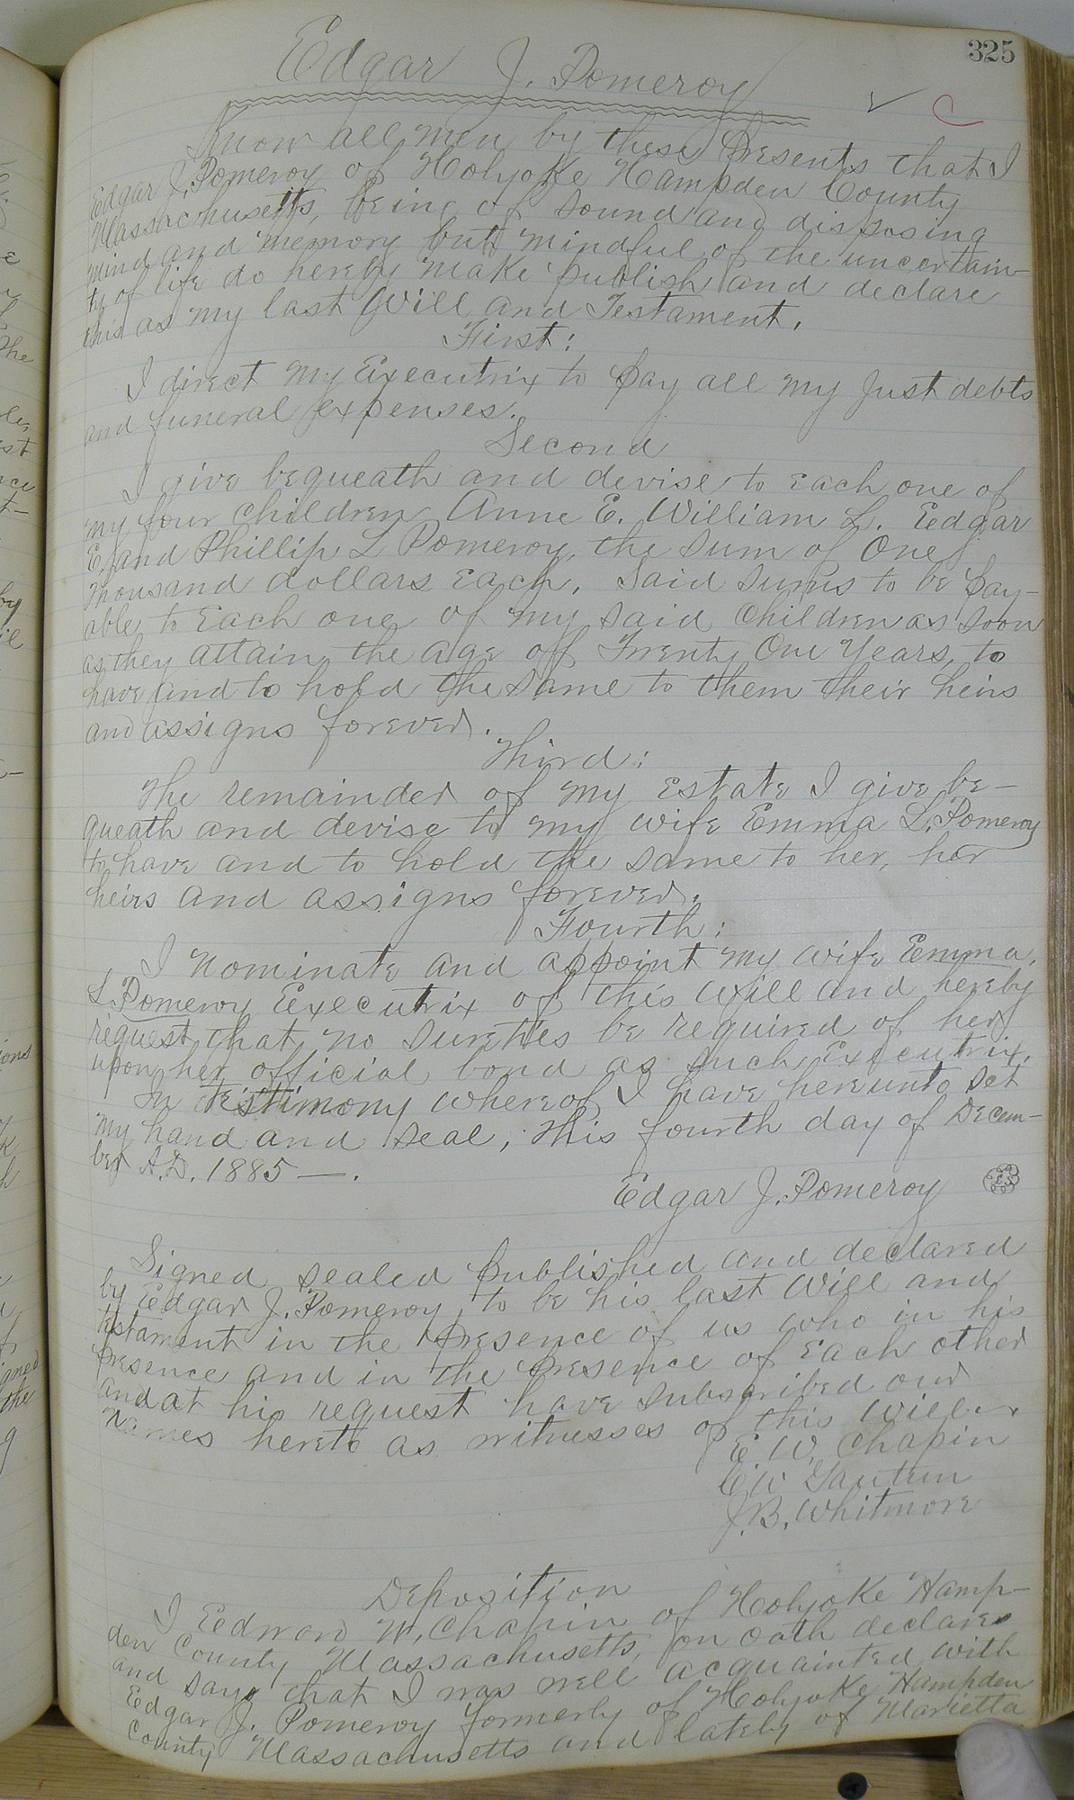 325
Edgar J. Pomeroy
Know all men by these Presents that I
Edgar J. Pomeroy of Holyoke Hampden County
Massachusetts, being of sound and disposing
mind and memory but mindful of the uncertain-
ty of life do hereby make publish and declare
this as my last Will and Testament.
First:
I direct my Executrix to pay all my just debts
and funeral expenses.
Second
I give bequeath and devise to each one of
my four children Anne E. William L. Eedgar
E. and Phillip L Pomeroy, the sum of One
thousand dollars each. Said sums to be pay-
able to each one of my said children as soon
as they attain the age off Twenty One Years, to
have and to hold the same to them their heirs
and assigns forever.
Third:
The remainder of my estate I give be-
queath and devise to my wife Emma L. Pomeroy
to have and to hold the same to her, her
heirs and assigns forever.
Fourth:
I nominate and appoint my wife Emma
L. Pomeroy Eexecutrix of this Will and hereby
request that no sureties be required of her
upon her official bond as such Executrix.
In Testimony whereof I have hereunto set
my hand and seal, this fourth day of Decem-
ber A.D. 1885 —.
Edgar J. Pomeroy
Signed sealed published and declared
by Edgar J. Pomeroy, to be his last Will and
testament in the presence of us who in his
presence and in the presence of each other
and at his request have subscribed our
names hereto as witnesses of this Will.
E W. Chapin
C W
J. B. Whitmore
Deposition
I Eedward W. Chapin of Holyoke Hamp-
den County Massachusetts, on oath declares
and says that I was well acquainted with
Edgar J. Pomeroy formerly of Holyoke Hampden
County Massachusetts and lately of Marietta